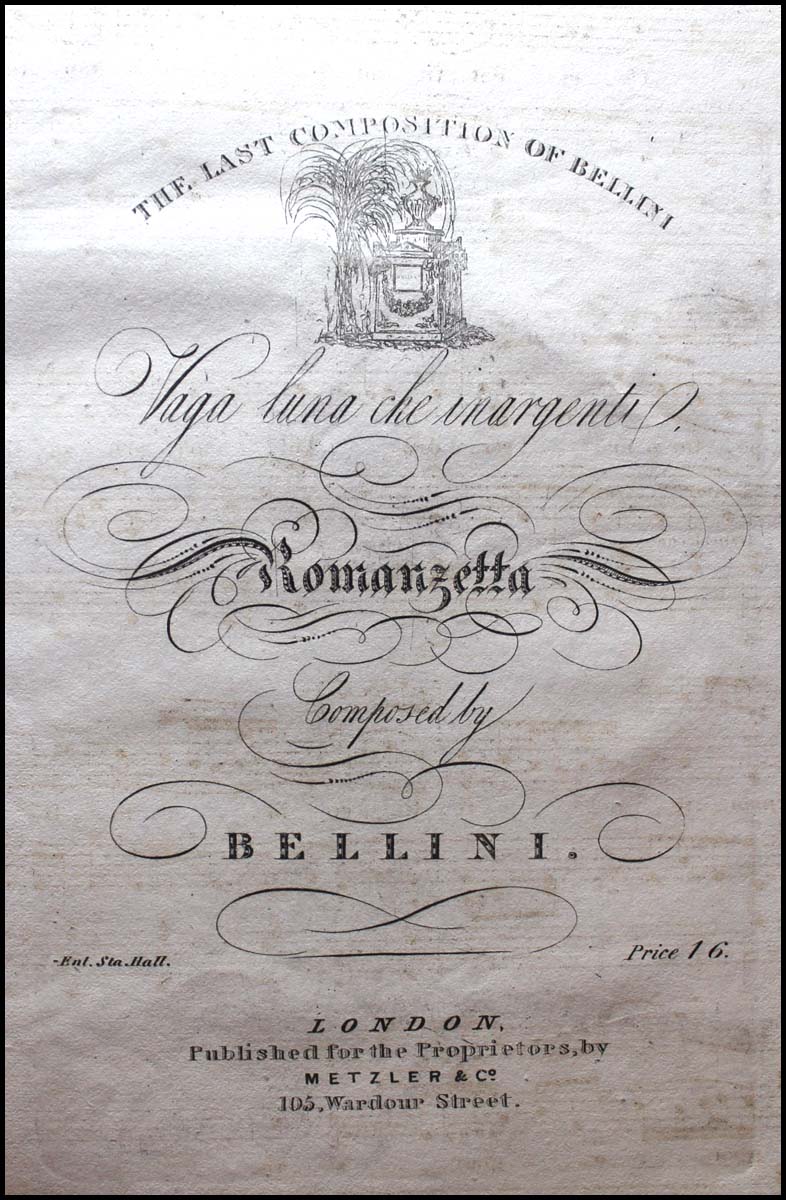 THE LAST COMPOSITION OF BELLINI
Vaga luna che inargenti.
Romanzetta
Composed by
BELLINI.
Ent. Sta. Hall.
Price 1 6.
LONDON,
Published for the Proprietors, by
METZLER & Co.
105, Wardour Street.